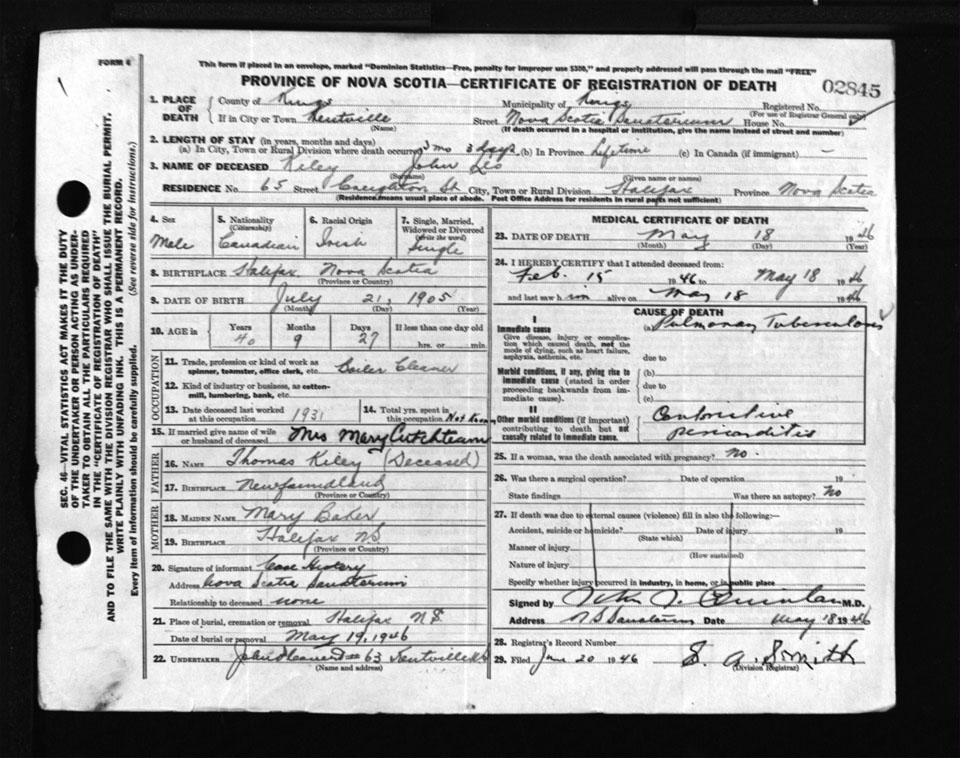 FORM 6
This form if placed in an envelope, marked "Dominion Statistics—Free, penalty for improper use $300," and properly addressed will pass through the mail "FREE"
PROVINCE OF NOVA SCOTIA—CERTIFICATE OF REGISTRATION OF DEATH
02845
SEC. 46—VITAL STATISTICS ACT MAKES IT THE DUTY
OF THE UNDERTAKER OR PERSON ACTING AS UNDER-
TAKER TO OBTAIN ALL THE PARTICULARS REQUIRED
IN THE "CERTIFICATE OF REGISTRATION OF DEATH"
AND TO FILE THE SAME WITH THE DIVISION REGISTRAR WHO SHALL ISSUE THE BURIAL PERMIT.
WRITE PLAINLY WITH UNFADING INK. THIS IS A PERMANENT RECORD.
Every item of Information should be carefully supplied. (See reverse side for instructions.)
1. PLACE OF DEATH
County of Kings Municipality of Kings Registered No.
(For use of Registrar General only)
If in City or Town Kentville Street Nova Scotia Sanatorium House No.
(Name) (If death occurred in a hospital or institution, give the name instead of street and number)
2. LENGTH OF STAY (in years, months and days)
(a) In City, Town or Rural Division where death occurred 3 mo 3 days (b) In Province Lifetime (c) In Canada (if immigrant) —
3. NAME OF DECEASED Kiley John Leo
(Surname) (Given name or names)
RESIDENCE No. 65 Street Creighton St City, Town or Rural Division Halifax Province Nova Scotia
(Residence means usual place of abode. Post Office Address for residents in rural parts not sufficient)
4. Sex
Male
5. Nationality
(Citizenship)
Canadian
6. Racial Origin
Irish
7. Single, Married,
Widowed or Divorced
(Write the word)
Single
8. BIRTHPLACE Halifax Nova Scotia
(Province or Country)
9. DATE OF BIRTH July 21, 1905
(Month) (Day) (Year)
10. AGE in
Years Months Days If less than one day old
40 9 27 hrs. or min.
OCCUPATION
11. Trade, profession or kind of work as
spinner, teamster, office clerk, etc. Boiler Cleaner
12. Kind of industry or business, as cotton-
mill, lumbering, bank, etc.
13. Date deceased last worked
at this occupation 1931
14. Total yrs. spent in
this occupation Not Known
15. If married give name of wife
or husband of deceased Mrs Mary
FATHER
16. NAME Thomas Kiley (Deceased)
17. BIRTHPLACE Newfoundland
(Province or Country)
MOTHER
18. MAIDEN NAME Mary Baker
19. BIRTHPLACE Halifax NS
(Province or Country)
20. Signature of informant Case History
Address Nova Scotia Sanatorium
Relationship to deceased none
21. Place of burial, cremation or removal Halifax NS
Date of burial or removal May 19, 1946
22. UNDERTAKER 63 Kentville NS
(Name and address)
MEDICAL CERTIFICATE OF DEATH
23. DATE OF DEATH May 18 1946
(Month) (Day)
24. I HEREBY CERTIFY that I attended deceased from:
Feb. 15 1946 to May 18 1946
and last saw him alive on May 18 1946
CAUSE OF DEATH
I
Immediate cause (a) Pulmonary Tuberculosis
Give disease, injury or complica-
tion which caused death, not the
mode of dying, such as heart failure,
asphyxia, asthenia, etc.
due to
Morbid conditions, if any, giving rise to
immediate cause (stated in order
proceeding backwards from im-
mediate cause).
(b)
due to
(c)
II
Other morbid conditions (if important)
contributing to death but not
causally related to immediate cause.
Constrictive
pericarditis
25. If a woman, was the death associated with pregnancy? no.
26. Was there a surgical operation? Date of operation 19
State findings Was there an autopsy? No
27. If death was due to external causes (violence) fill in also the following:—
Accident, suicide or homicide? Date of injury 19
(State which)
Manner of injury
(How sustained)
Nature of injury
Specify whether injury occurred in industry, in home, or in public place
Signed by J. Quinlan M.D.
Address NS Sanatorium Date May 18 1946
28. Registrar's Record Number
29. Filed June 20 1946 S. A. Smith
(Division Registrar)